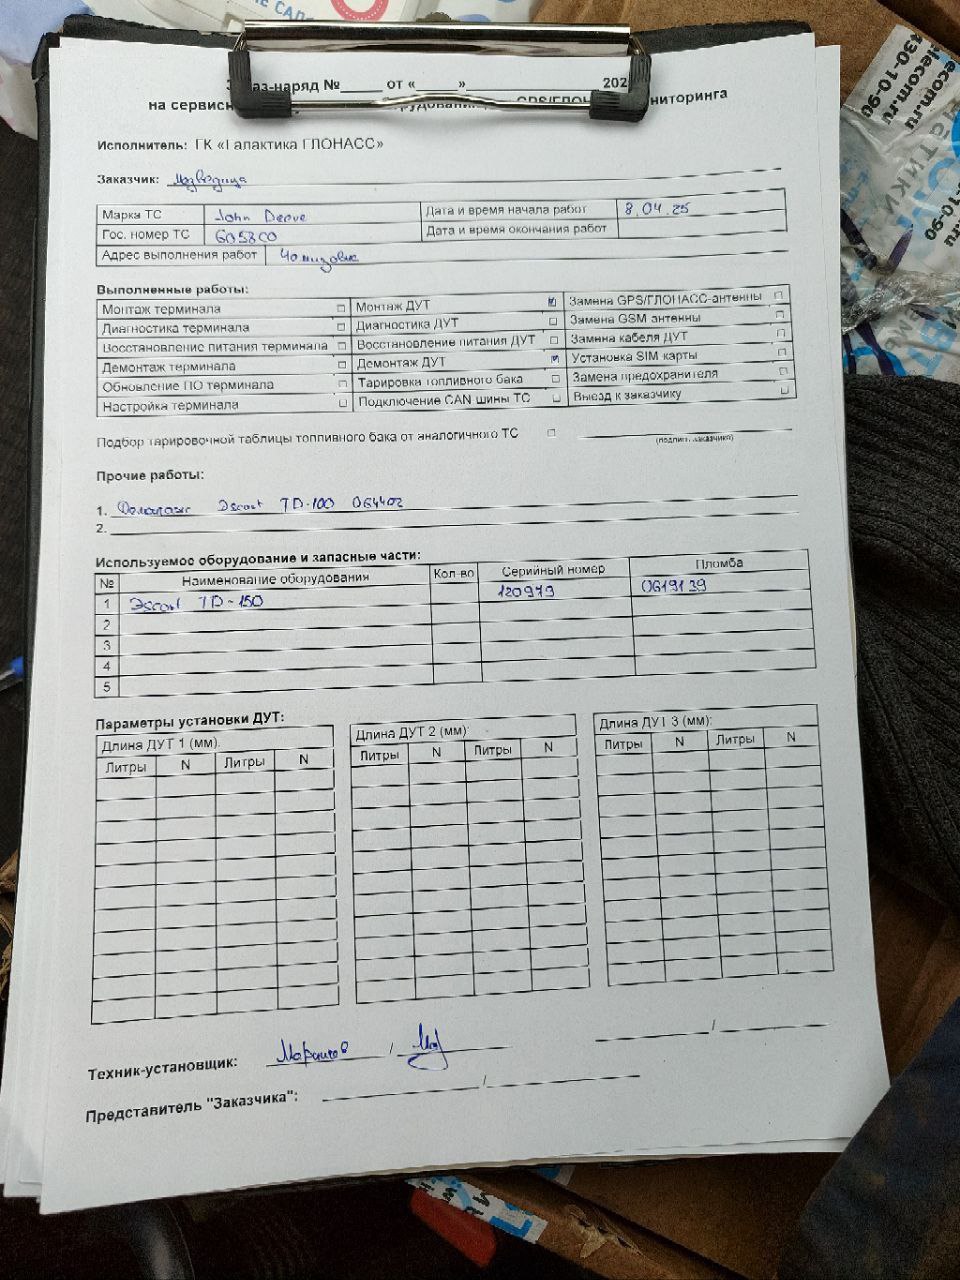 Заказ-наряд №_____ от «_____»____________ 202
на сервисн GPS/ГЛОН мониторинга
Исполнитель: ГК «Галактика ГЛОНАСС»
Заказчик:
Марка ТС John Deere Дата и время начала работ 8.04.25
Гос. номер ТС Дата и время окончания работ
Адрес выполнения работ
Выполненные работы:
Монтаж терминала Монтаж ДУТ Замена GPS/ГЛОНАСС-антенны
Диагностика терминала Диагностика ДУТ Замена GSM антенны
Восстановление питания терминала Восстановление питания ДУТ Замена кабеля ДУТ
Демонтаж терминала Демонтаж ДУТ Установка SIM карты
Обновление ПО терминала Тарировка топливного бака Замена предохранителя
Настройка терминала Подключение CAN шины ТС Выезд к заказчику
Подбор тарировочной таблицы топливного бака от аналогичного ТС
(подпись заказчика)
Прочие работы:
1. Демонтаж Эscort TD-100 064402
2.
Используемое оборудование и запасные части:
№ Наименование оборудования Кол-во Серийный номер Пломба
1 Эscort TD-150 120979 0619139
2
3
4
5
Параметры установки ДУТ:
Длина ДУТ 1 (мм): Длина ДУТ 2 (мм): Длина ДУТ 3 (мм):
Литры N Литры N Литры N Литры N Литры N Литры N
Техник-установщик: /
Представитель "Заказчика": /
30-10-90
lecom.ru
ecom.ru